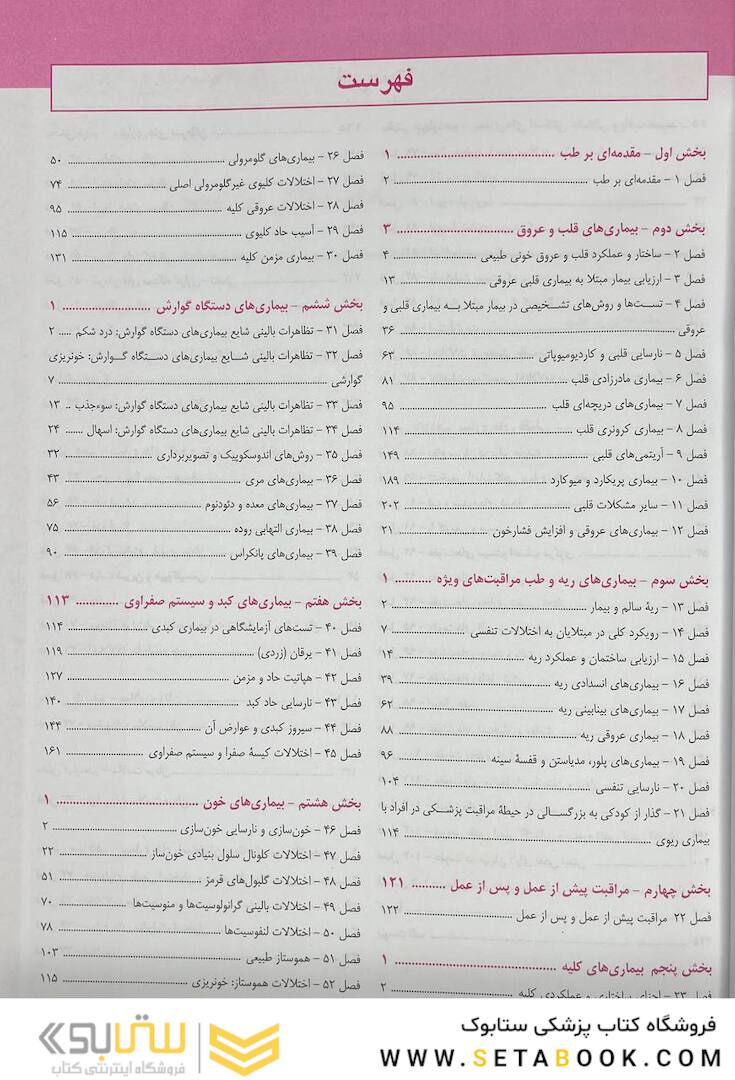 فهرست
بخش اول – مقدمه‌ای بر طب ........ ۱
فصل ۱ – مقدمه‌ای بر طب ........ ۲
بخش دوم – بیماری‌های قلب و عروق ........ ۳
فصل ۲ – ساختار و عملکرد قلب و عروق خونی طبیعی ........ ۴
فصل ۳ – ارزیابی بیمار مبتلا به بیماری قلبی عروقی ........ ۱۳
فصل ۴ – تست‌ها و روش‌های تشخیصی در بیمار مبتلا به بیماری قلبی و
عروقی ........ ۳۶
فصل ۵ – نارسایی قلبی و کاردیومیوپاتی ........ ۶۳
فصل ۶ – بیماری مادرزادی قلب ........ ۸۱
فصل ۷ – بیماری‌های دریچه‌ای قلب ........ ۹۵
فصل ۸ – بیماری کرونری قلب ........ ۱۱۴
فصل ۹ – آریتمی‌های قلبی ........ ۱۴۹
فصل ۱۰ – بیماری پریکارد و میوکارد ........ ۱۸۹
فصل ۱۱ – سایر مشکلات قلبی ........ ۲۰۲
فصل ۱۲ – بیماری‌های عروقی و افزایش فشارخون ........ ۲۱
بخش سوم – بیماری‌های ریه و طب مراقبت‌های ویژه ........ ۱
فصل ۱۳ – ریهٔ سالم و بیمار ........ ۲
فصل ۱۴ – رویکرد کلی در مبتلایان به اختلالات تنفسی ........ ۷
فصل ۱۵ – ارزیابی ساختمان و عملکرد ریه ........ ۱۴
فصل ۱۶ – بیماری‌های انسدادی ریه ........ ۳۹
فصل ۱۷ – بیماری‌های بینابینی ریه ........ ۶۲
فصل ۱۸ – بیماری عروقی ریه ........ ۸۸
فصل ۱۹ – بیماری‌های پلور، مدیاستن و قفسهٔ سینه ........ ۹۶
فصل ۲۰ – نارسایی تنفسی ........ ۱۰۴
فصل ۲۱ – گذار از کودکی به بزرگسالی در حیطهٔ مراقبت پزشکی در افراد با
بیماری ریوی ........ ۱۱۴
بخش چهارم – مراقبت پیش از عمل و پس از عمل ........ ۱۲۱
فصل ۲۲ مراقبت پیش از عمل و پس از عمل ........ ۱۲۲
بخش پنجم بیماری‌های کلیه ........ ۱
فصل ۲۳ – اجزای ساختاری و عملکردی کلیه ........ ۲
فصل ۲۶ – بیماری‌های گلومرولی ........ ۵۰
فصل ۲۷ – اختلالات کلیوی غیرگلومرولی اصلی ........ ۷۴
فصل ۲۸ – اختلالات عروقی کلیه ........ ۹۵
فصل ۲۹ – آسیب حاد کلیوی ........ ۱۱۵
فصل ۳۰ – بیماری مزمن کلیه ........ ۱۳۱
بخش ششم – بیماری‌های دستگاه گوارش ........ ۱
فصل ۳۱ – تظاهرات بالینی شایع بیماری‌های دستگاه گوارش: درد شکم ..... ۲
فصل ۳۲ – تظاهرات بالینی شایع بیماری‌های دستگاه گوارش: خونریزی
گوارشی ........ ۷
فصل ۳۳ – تظاهرات بالینی شایع بیماری‌های دستگاه گوارش: سوءجذب .. ۱۳
فصل ۳۴ – تظاهرات بالینی شایع بیماری‌های دستگاه گوارش: اسهال ....... ۲۴
فصل ۳۵ – روش‌های اندوسکوپیک و تصویربرداری ........ ۳۲
فصل ۳۶ – بیماری‌های مری ........ ۴۳
فصل ۳۷ – بیماری‌های معده و دئودنوم ........ ۵۶
فصل ۳۸ – بیماری التهابی روده ........ ۷۵
فصل ۳۹ – بیماری‌های پانکراس ........ ۹۰
بخش هفتم – بیماری‌های کبد و سیستم صفراوی ........ ۱۱۳
فصل ۴۰ – تست‌های آزمایشگاهی در بیماری کبدی ........ ۱۱۴
فصل ۴۱ – یرقان (زردی) ........ ۱۱۹
فصل ۴۲ – هپاتیت حاد و مزمن ........ ۱۲۷
فصل ۴۳ – نارسایی حاد کبد ........ ۱۴۰
فصل ۴۴ – سیروز کبدی و عوارض آن ........ ۱۴۴
فصل ۴۵ – اختلالات کیسهٔ صفرا و سیستم صفراوی ........ ۱۶۱
بخش هشتم – بیماری‌های خون ........ ۱
فصل ۴۶ – خون‌سازی و نارسایی خون‌سازی ........ ۲
فصل ۴۷ – اختلالات کلونال سلول بنیادی خون‌ساز ........ ۲۲
فصل ۴۸ – اختلالات گلبول‌های قرمز ........ ۵۱
فصل ۴۹ – اختلالات بالینی گرانولوسیت‌ها و منوسیت‌ها ........ ۷۰
فصل ۵۰ – اختلالات لنفوسیت‌ها ........ ۷۸
فصل ۵۱ – هموستاز طبیعی ........ ۱۰۳
فصل ۵۲ – اختلالات هموستاز: خونریزی ........ ۱۱۵
فروشگاه کتاب پزشکی ستابوک
WWW.SETABOOK.COM
ستابوک
فروشگاه اینترنتی کتاب